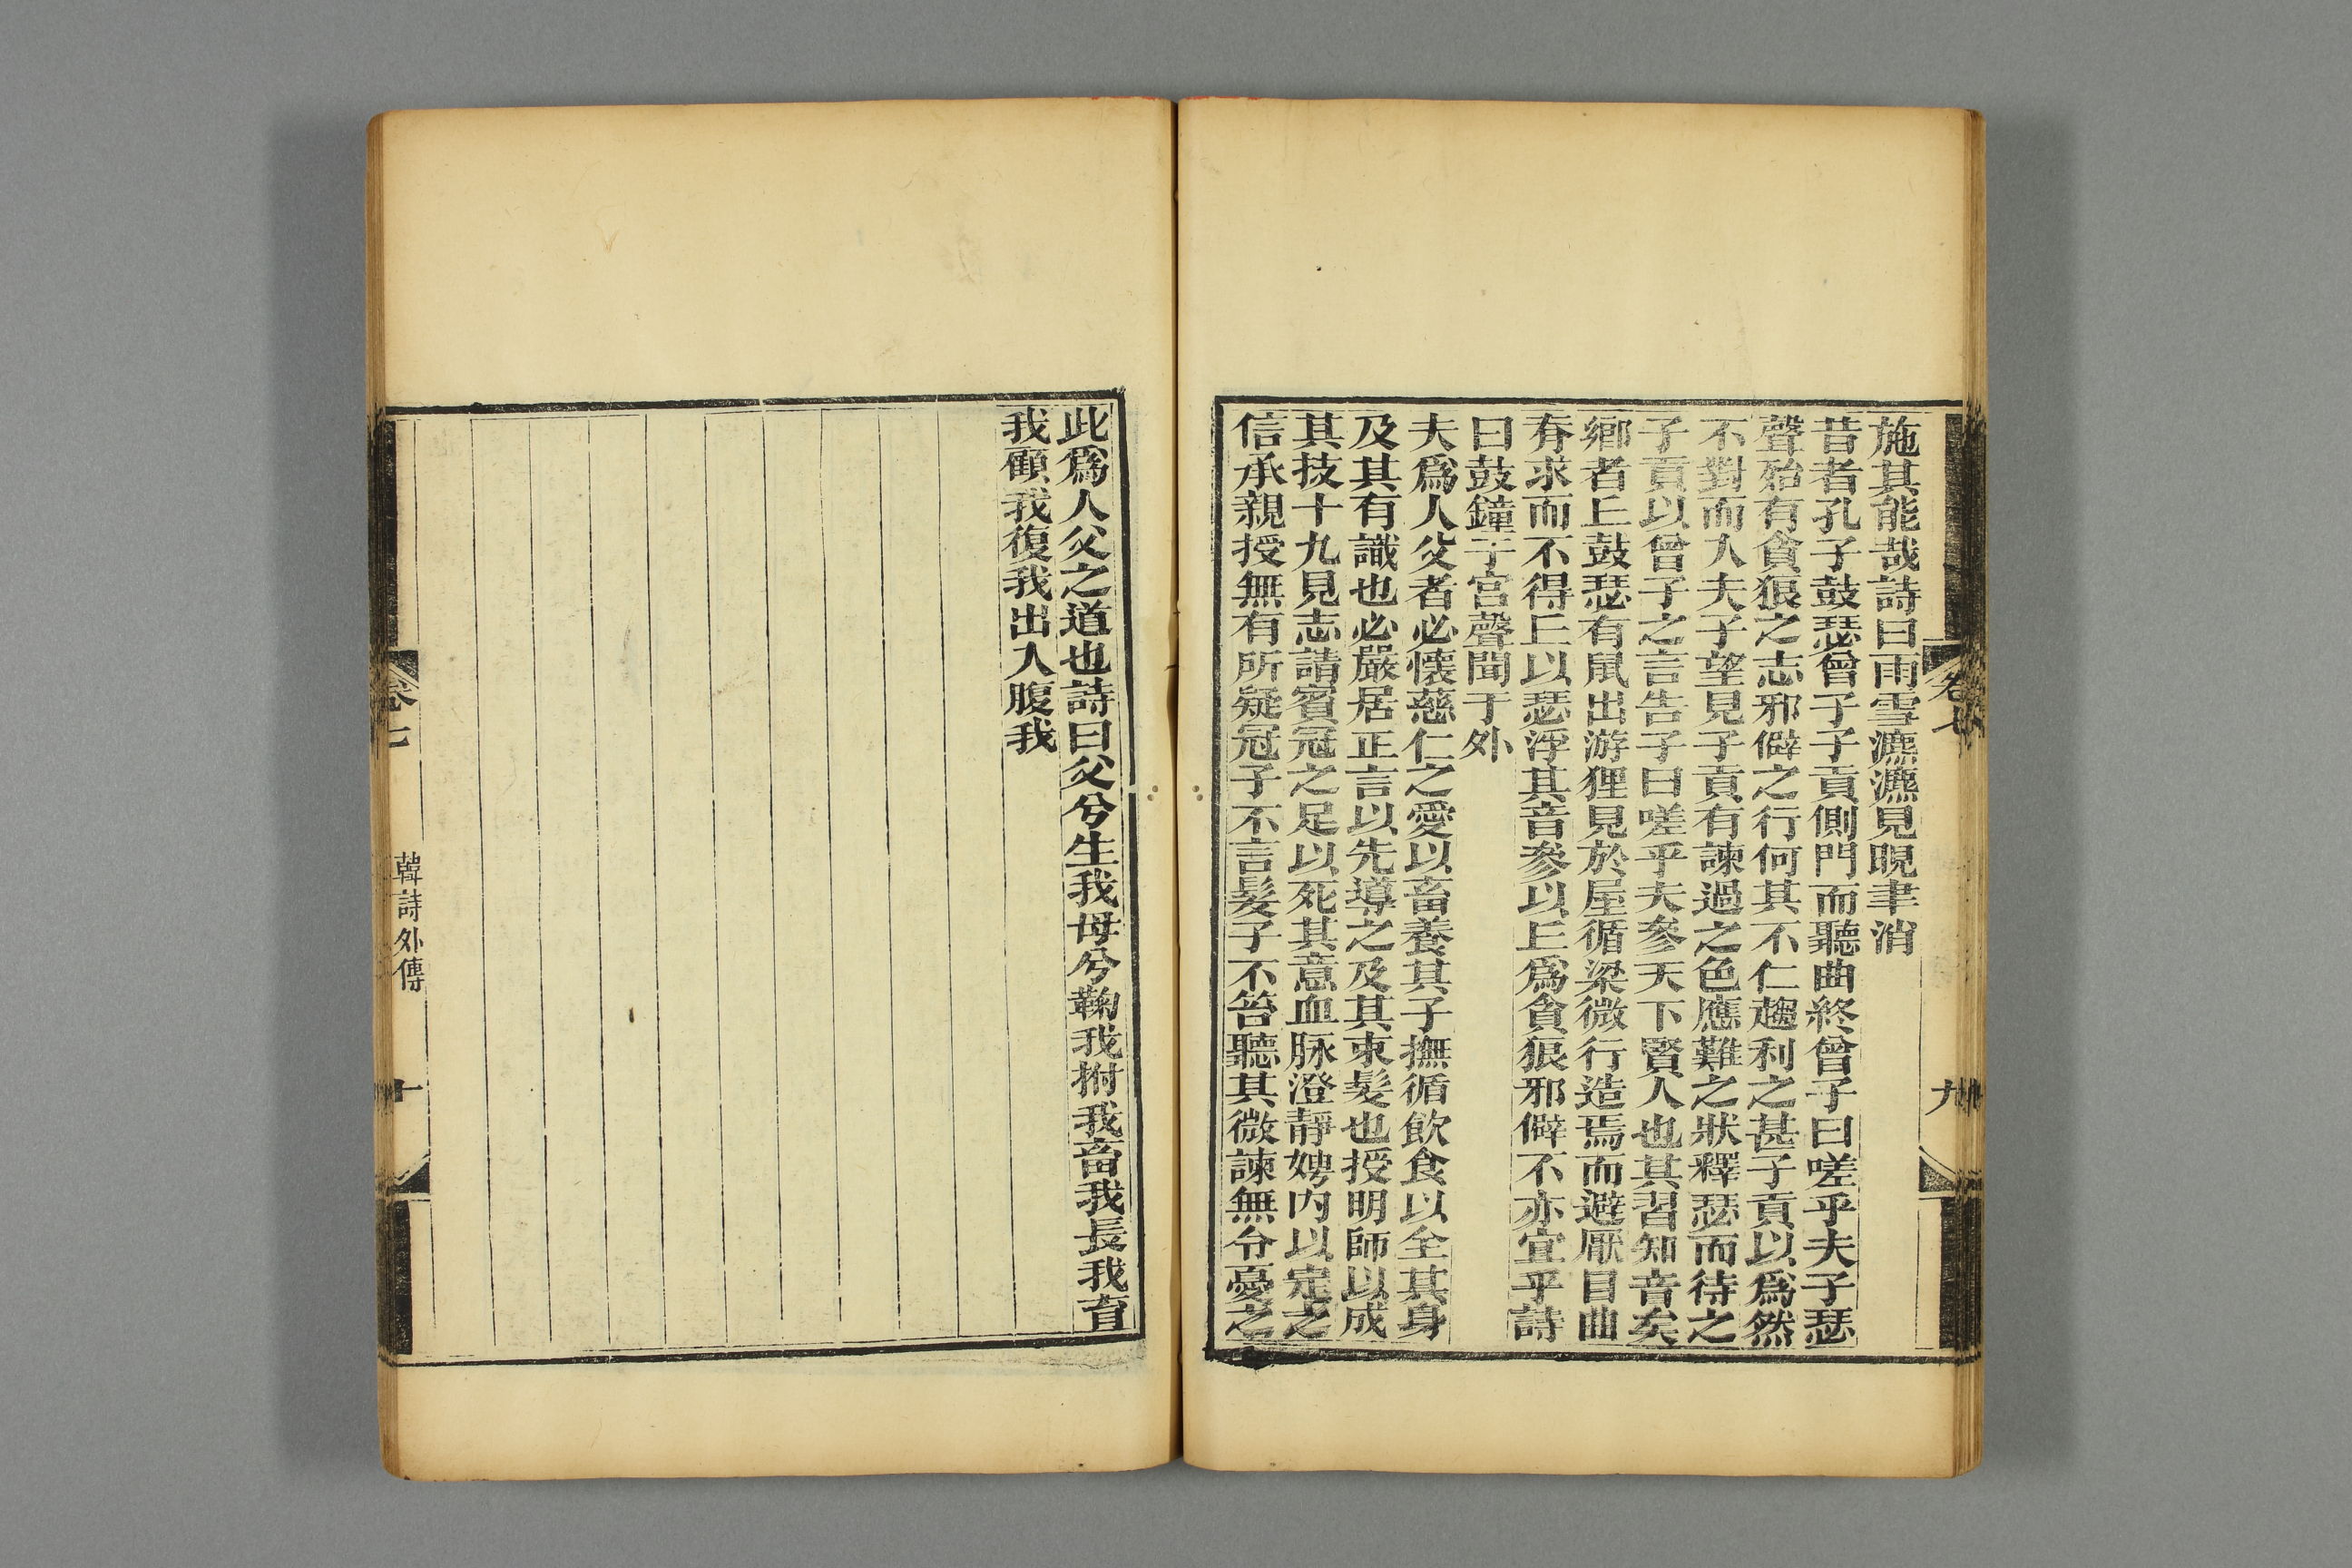 施其能哉詩曰雨雪瀌瀌見晛聿消
昔者孔子鼓瑟曾子子貢側門而聽曲終曾子曰嗟乎夫子瑟
聲殆有貪狼之志邪僻之行何其不仁趨利之甚子貢以爲然
不對而入夫子望見子貢有諫過之色應難之狀釋瑟而待之
子貢以曾子之言告子曰嗟乎夫參天下賢人也其習知音矣
鄉者丘鼓瑟有鼠出游狸見於屋循梁微行造焉而避厭目曲
脊求而不得丘以瑟淫其音參以丘爲貪狼邪僻不亦宜乎詩
曰鼓鐘于宮聲聞于外
夫爲人父者必懷慈仁之愛以畜養其子撫循飲食以全其身
及其有識也必嚴居正言以先導之及其束髮也授明師以成
其技十九見志請賓冠之足以死其意血脉澄靜娉内以定之
信承親授無有所疑冠子不言髮子不笞聽其微諫無令憂之
卷七
九
此爲人父之道也詩曰父兮生我母兮鞠我拊我畜我長我育
我顧我復我出入腹我
卷七
韓詩外傳
十